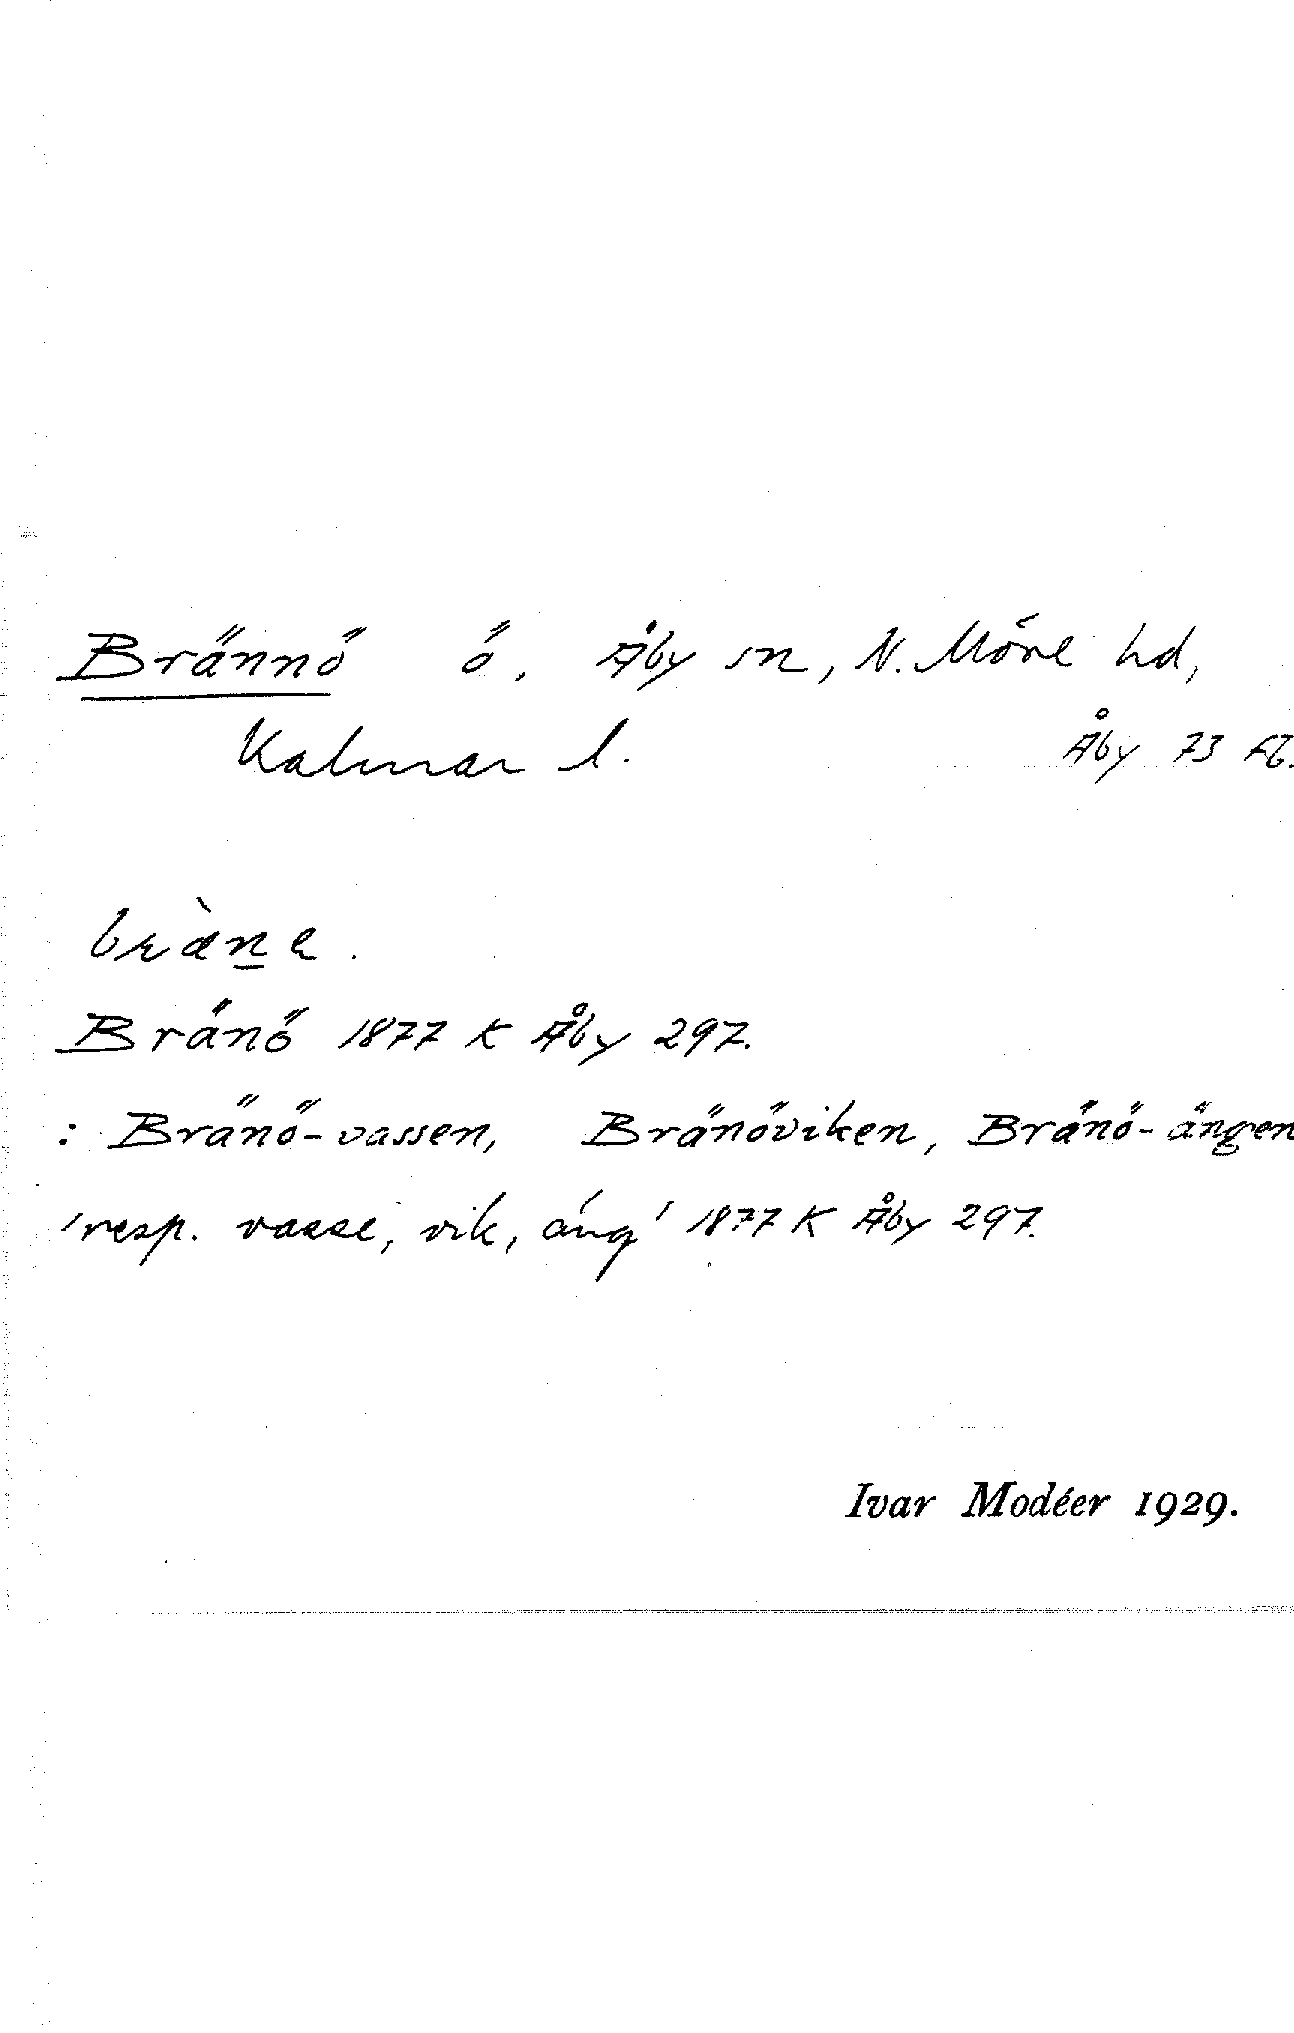 Brännö ö, Åby sn, N. Möre hd,
Kalmar l. Åby 73 Ab.
bræ̀n̲e.
Bränö 1877 K Åby 297.
: Bränö-vassen, Bränöviken, Bränö-ängen
'resp. vasse, vik, äng' 1877 K Åby 297.
Ivar Modéer 1929.